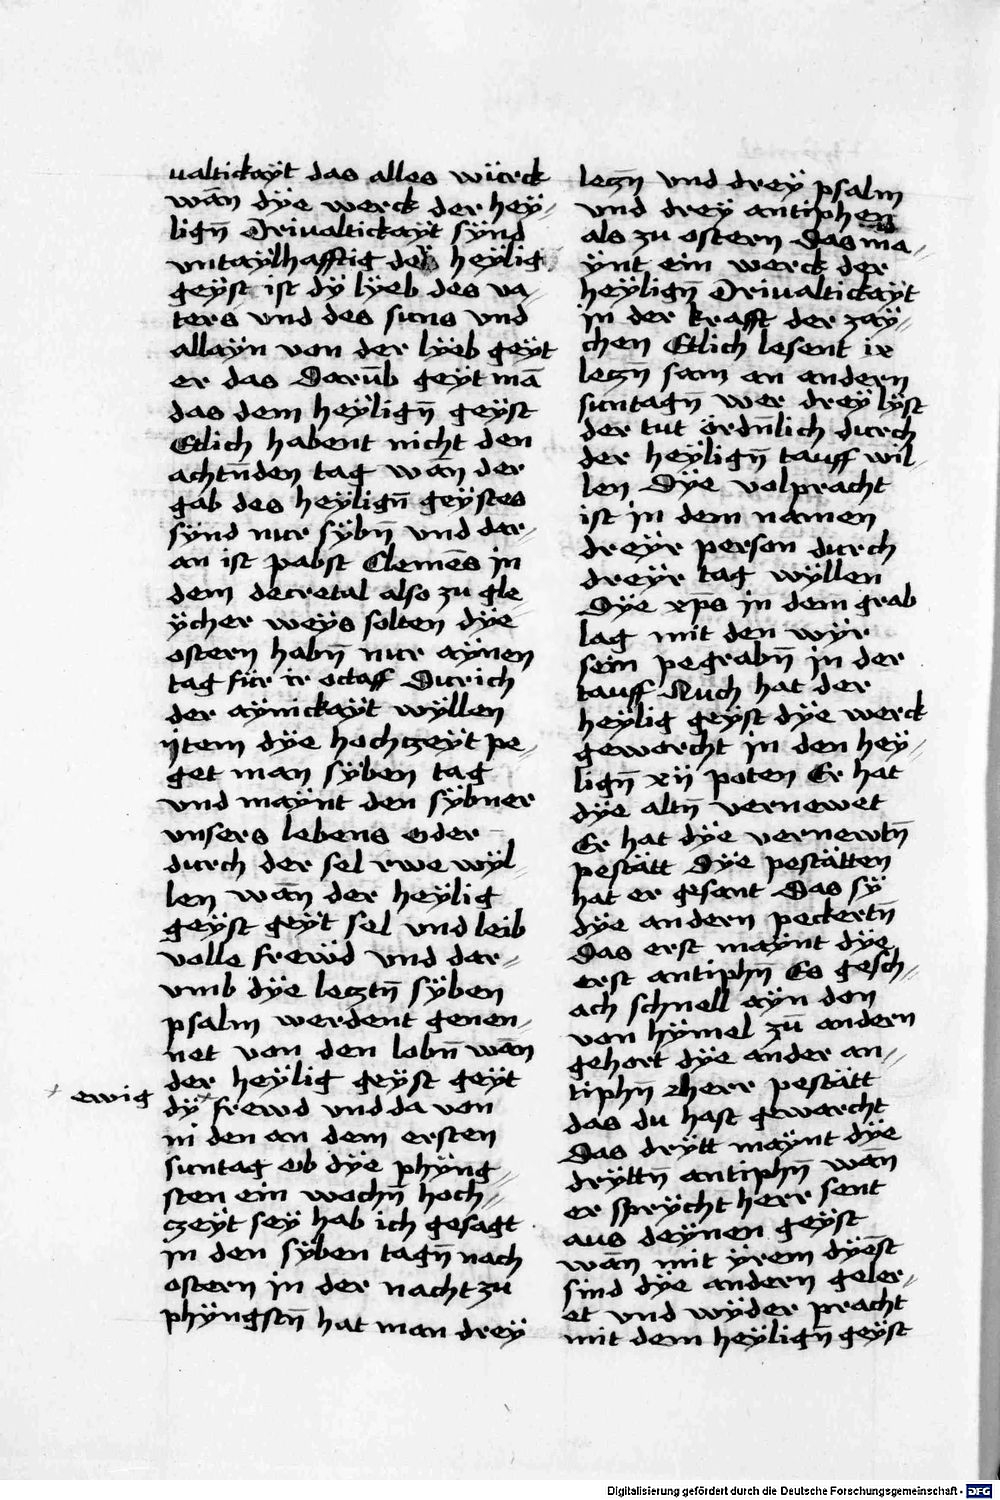 ualtickäyt das alles würck
wān dÿe werck der heÿ-
lign̄ Driualtickaÿt sÿnd
vntaÿlhafftig der heÿlig
geÿst ist dÿ lÿeb des va-
ters vnd des suns vnd
allaÿn von der lÿeb geÿt
er das Darūb geÿt mā
das dem heÿlign̄ geÿst
Etlich habent nicht den
achtn̄den tag wan der
gab des heÿlign̄ geÿstes
sÿnd nur sÿbn̄ vnd dar-
an ist pabst Clemēs in
dem decretal also zu gle-
ÿcher weÿs solten dÿe
ostern habn̄ nur aÿnen
tag für ir octaff Durich
der aÿnickaÿt wÿllen
ijtem dÿe hochczeÿt pe-
get man sÿben tag
vnd maÿnt den sÿbner
vnsers lebens oder
durch der sel rwe wÿl-
len wān der heÿlig
geÿst geÿt sel vnd leib
volle frewd vnd dar-
vmb dÿe lecztn̄ sÿben
psalm werdent genen-
net von den lobn̄ wān
der heÿlig geÿst geÿt
+ ewig
dÿ + frewd vnd da von
in den an dem ersten
suntag ob dÿe phÿng-
sten ein wochn̄ hoch-
czeÿt seÿ hab ich gesagt
in den sÿben tagn̄ nach
ostern in der nacht zu
phÿngstn̄ hat man dreÿ
leczn vnd dreÿ psalm
vnd dreÿ antiphen
als zu ostern Das ma-
ÿnt ein werck der
heÿlign̄ Driualtickaÿt
in der krafft der zaÿ-
chen Etlich lesent ix
leczn̄ sam an andern
suntagn̄ wer dreÿ lÿst
der tut ördn̄lich durch
der heÿlign̄ tauff wil-
len Dÿe volpracht
ist in dem namen
dreÿr person durch
dreÿr tag wÿllen
Dÿe xp̄s in dem grab
lag mit den wÿr
sein pegrabn̄ in der
tauff Auch hat der
heÿlig geÿst dÿe werck
geworcht in den heÿ-
lign̄ xij poten Er hat
dÿe altn̄ vernewet
Er hat dÿe vernewtn̄
pestätt Dÿe pestätten
hat er gesant Das sÿ
dÿe andern peckertn̄
Das erst maÿnt dÿe
erst antiphn̄ Es gesch-
ach schnell aÿn den
von hÿmel zū andern
gehort dÿe ander an-
tiphn̄ herr pestätt
das du hast geworcht
Das drÿtt maÿnt dÿe
drÿttn̄ antiphn̄ wān
er sprÿcht herr sent
aus deÿnen geÿst
wān mit ÿrem dÿenst
sind dÿe andern geler-
et vnd wÿder pracht
mit dem heÿlign̄ geÿst
Digitalisierung gefördert durch die Deutsche Forschungsgemeinschaft - DFG